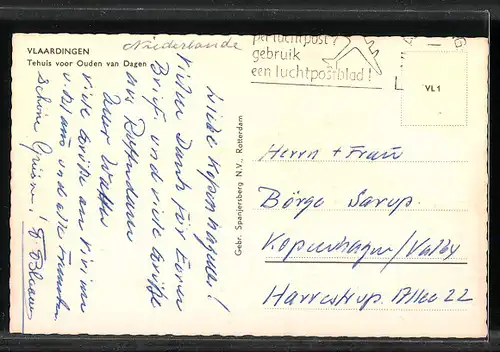 VLAARDINGEN
Tehuis voor Ouden van Dagen
Niederlande
per luchtpost?
gebruik
een luchtpostblad!
VL1
Liebe Kopenhagener!
Vielen Dank für Euren
Brief und viele Grüße
aus Rotterdam
Euer Walter
viele Grüße an
und alle
schöne Grüsse!
Gebr. Spanjersberg N.V., Rotterdam
Herrn + Frau
Börge Sarup
Kopenhagen/Valby
Harrestrup Allee 22